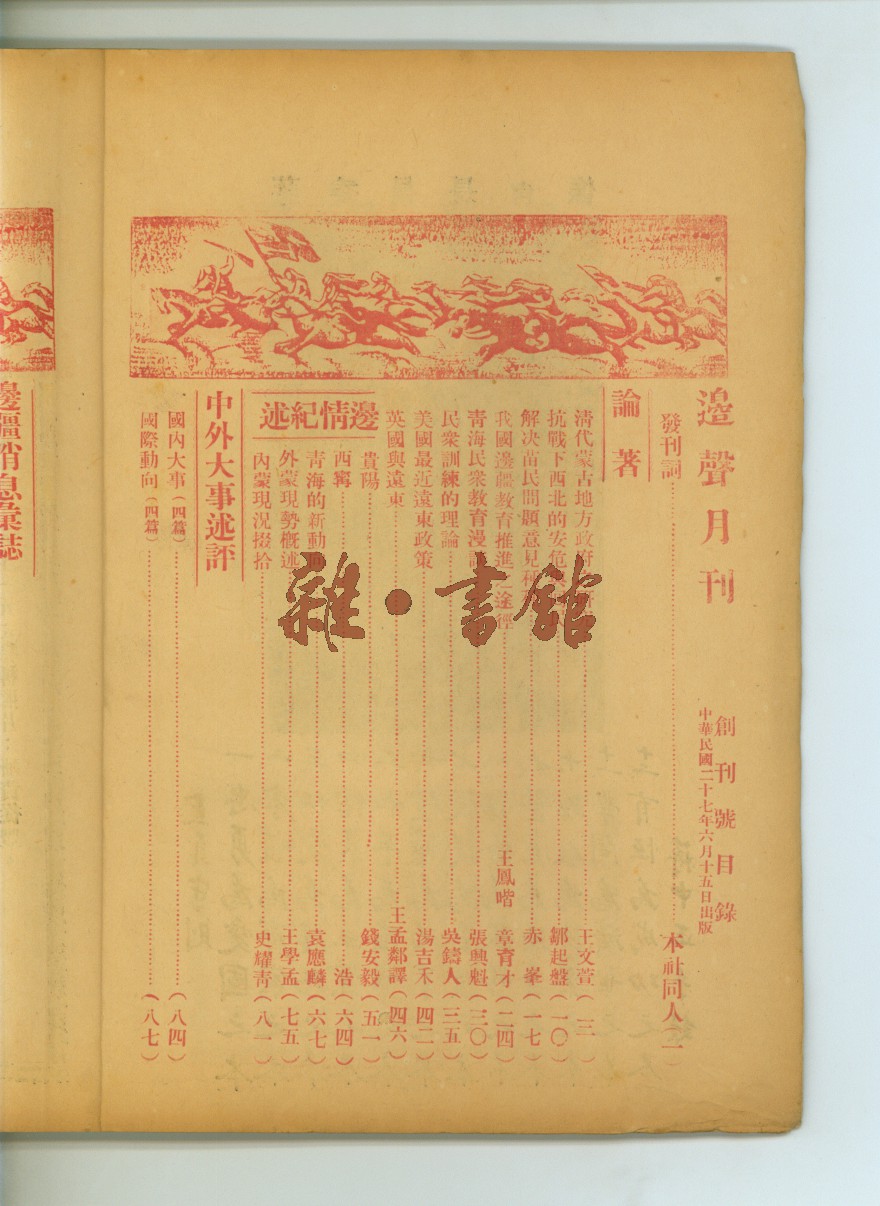 邊聲月刊
創刊號目錄
中華民國二十七年六月十五日出版
發刊詞 本社同人(一
論著
清代蒙古地方政府 王文萱(三
抗戰下西北的安危 鄒起盤(一〇
解決苗民問題意見 赤峯(一七
我國邊疆教育推進之途徑 王鳳喈 章育才(二四
青海民衆教育漫 張興魁(三〇
民衆訓練的理論 吳鑄人(三五
美國最近遠東政策 湯吉禾(四二
英國與遠東 王孟鄰譯(四六)
邊情紀述
貴陽 錢安毅(五一)
西寧 浩(六四)
青海的新動 袁應麟(六七)
外蒙現勢概述 王學孟(七五)
內蒙現況掇拾 史耀青(八一)
中外大事述評
國內大事(四篇) (八四)
國際動向(四篇) (八七)
邊疆消息彙誌
雜·書館